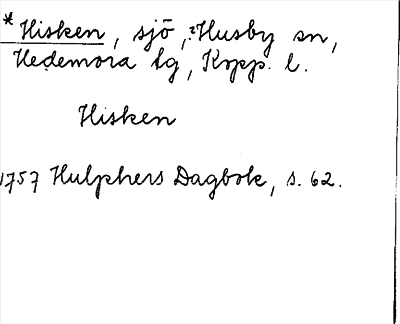 * Hisken, sjö, ?Husby sn,
Hedemora tg, Kopp. l.
Hisken
1757 Hülphers Dagbok, s. 62.